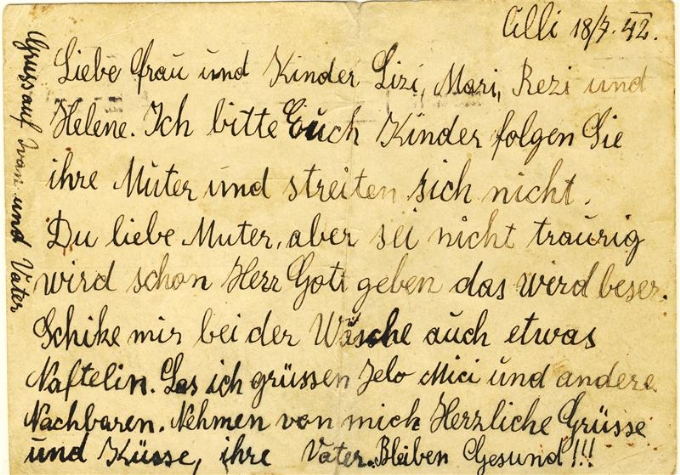 Alli 18/7. 42.
Liebe frau und Kinder Lizi, Mari, Rezi und
Helene. Ich bitte Euch Kinder folgen Sie
ihre Muter und streiten sich nicht.
Du liebe Muter, aber sei nicht traurig
wird schon Herr Gott geben das wird beser.
Schike mir bei der Wäsche auch etwas
Naftelin. Las ich grüssen Jelo Mici und andere
Nachbaren. Nehmen von mich Herzliche Grüsse
und Küsse, ihre Vater. Bleiben Gesund!!!
Gruss auf Ivan und Vater